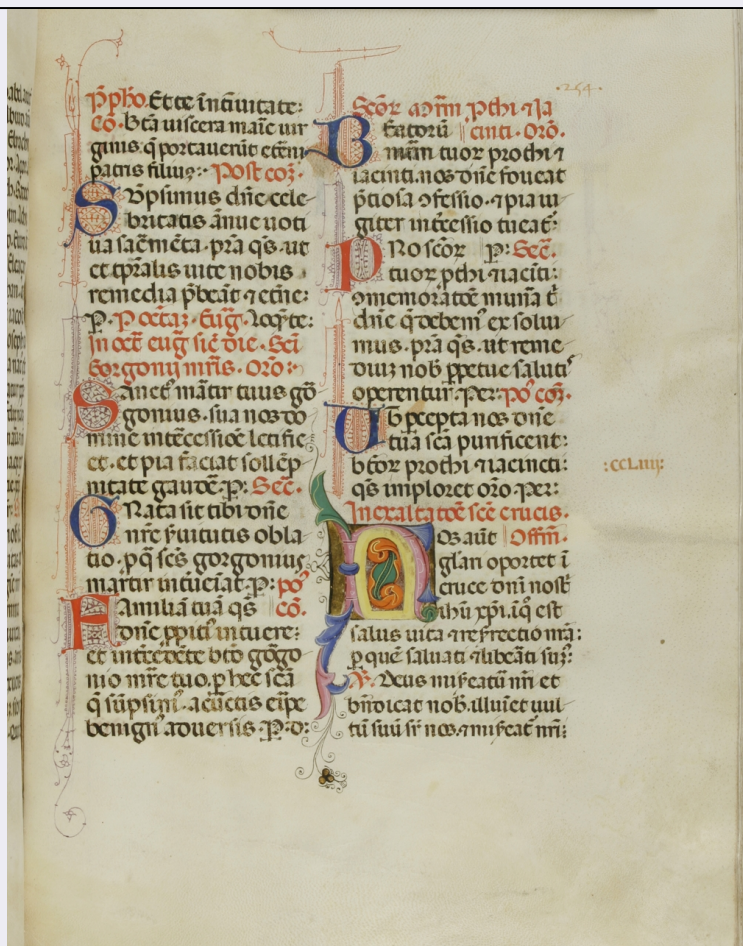 ·254·
p̄pħo. Et te in natiuitate:
cō. Btā uiscera marie uir
ginis. q̄ portauerūt eterni
patris filiuꝫ: Post coꝫ.
Sūpsimus dn̄e cele
britatis ānue uoti
ua sac̄mēta. pr̄a qs. ut
et tp̄ralis uite nobis
remedia p̄beāt ⁊ etn̄e:
P.
In oct̄ eug̃ sic̄ die. Sc̄i
Gorgonij mr̃is. Orō:
Sanct' mārtir tuus gō
gonius. sua nos do
mine int̄cessiōe letific
et. et pia faciat sollēp
nitate gaudē. P: Sec̄.
Grata sit tibi dn̄e
nr̄e ẜuitutis obla
tio. p̄ q̄ sc̄s gorgonius
martir P: po'
Familiā tuā qs cō.
dn̄e ppiti' intuere:
et int̄cedēte bt̄o gōgo
nio mr̄e tuo. p hec sc̄a
q̄ sūpsim'. a cūctis eripe
benign' aduersis. P: d:
Sc̄oꝝ mr̄m p̄thi ⁊ Ia
Beatorū cinti. Orō.
mr̄m tuoꝝ prothi ⁊
iacinti. nos dn̄e foueat
p̄tiosa ɔfessio. ⁊ pia iu
giter int̄cessio tueat':
Pro sc̄oꝝ P: Sec̄.
tuoꝝ p̄thi ⁊ iacīti:
ɔmemoratōe mun̄a t'
dn̄e q̄ debem' exsolui
mus. pr̄a qs. ut reme
diuꝫ nob̄ ppetue saluti'
operentur. Per. po' coꝫ.
Ut p̄cepta nos dn̄e
tua sc̄a purificent:
bt̄oꝝ prothi ⁊ iacincti:
qs imploret orō. Per:
In exaltatōe sc̄e crucis.
Nos aūt Offm̄.
gl̄ari oportet ī
cruce dn̄i nost̄
ihū xp̄i. ī q̄ est
salus uita ⁊ resr̄rectio nr̄a:
p quē saluati ⁊ libēati suꝫ:
Ꝟ. Deus miseat̄ nr̄i et
bn̄dicat nob̄. illuīet uul
tū suū sr̄ nos. ⁊ miseat̄ nr̄i:
:CCLIIII: